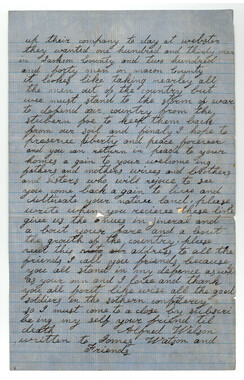 up their company to day at webster
they wanted one hundred and thirty men
in Jackson County and two hundred
and forty men on macon County
it lookes like taking nearley all
the men out of the country but
wee must stand to the storm of war
to defend our country from the
stuburn foe to keep them
from our soil and finaly I hope to
preserve liberty and peace forever
and you can return in peace to your
homes a gain to your welcome ing
fathers and mothers wives and brothers
and sisters who will rejoice to see
you come back a gain to live and
cultivate your native land please
write when you recieve these lines
give us the news in general and
a bout your fare and a bout
the growth of the country please
read this address to all the
friends I call you friends because
you all stand in my defence as well
as your own and I love and thank
you all both like wise all the good
soldiers in the sothern confedercy
so I must come to a close by subscri
be ing my self your friend till
death Alfred Watson
written to James Watson and
Friends